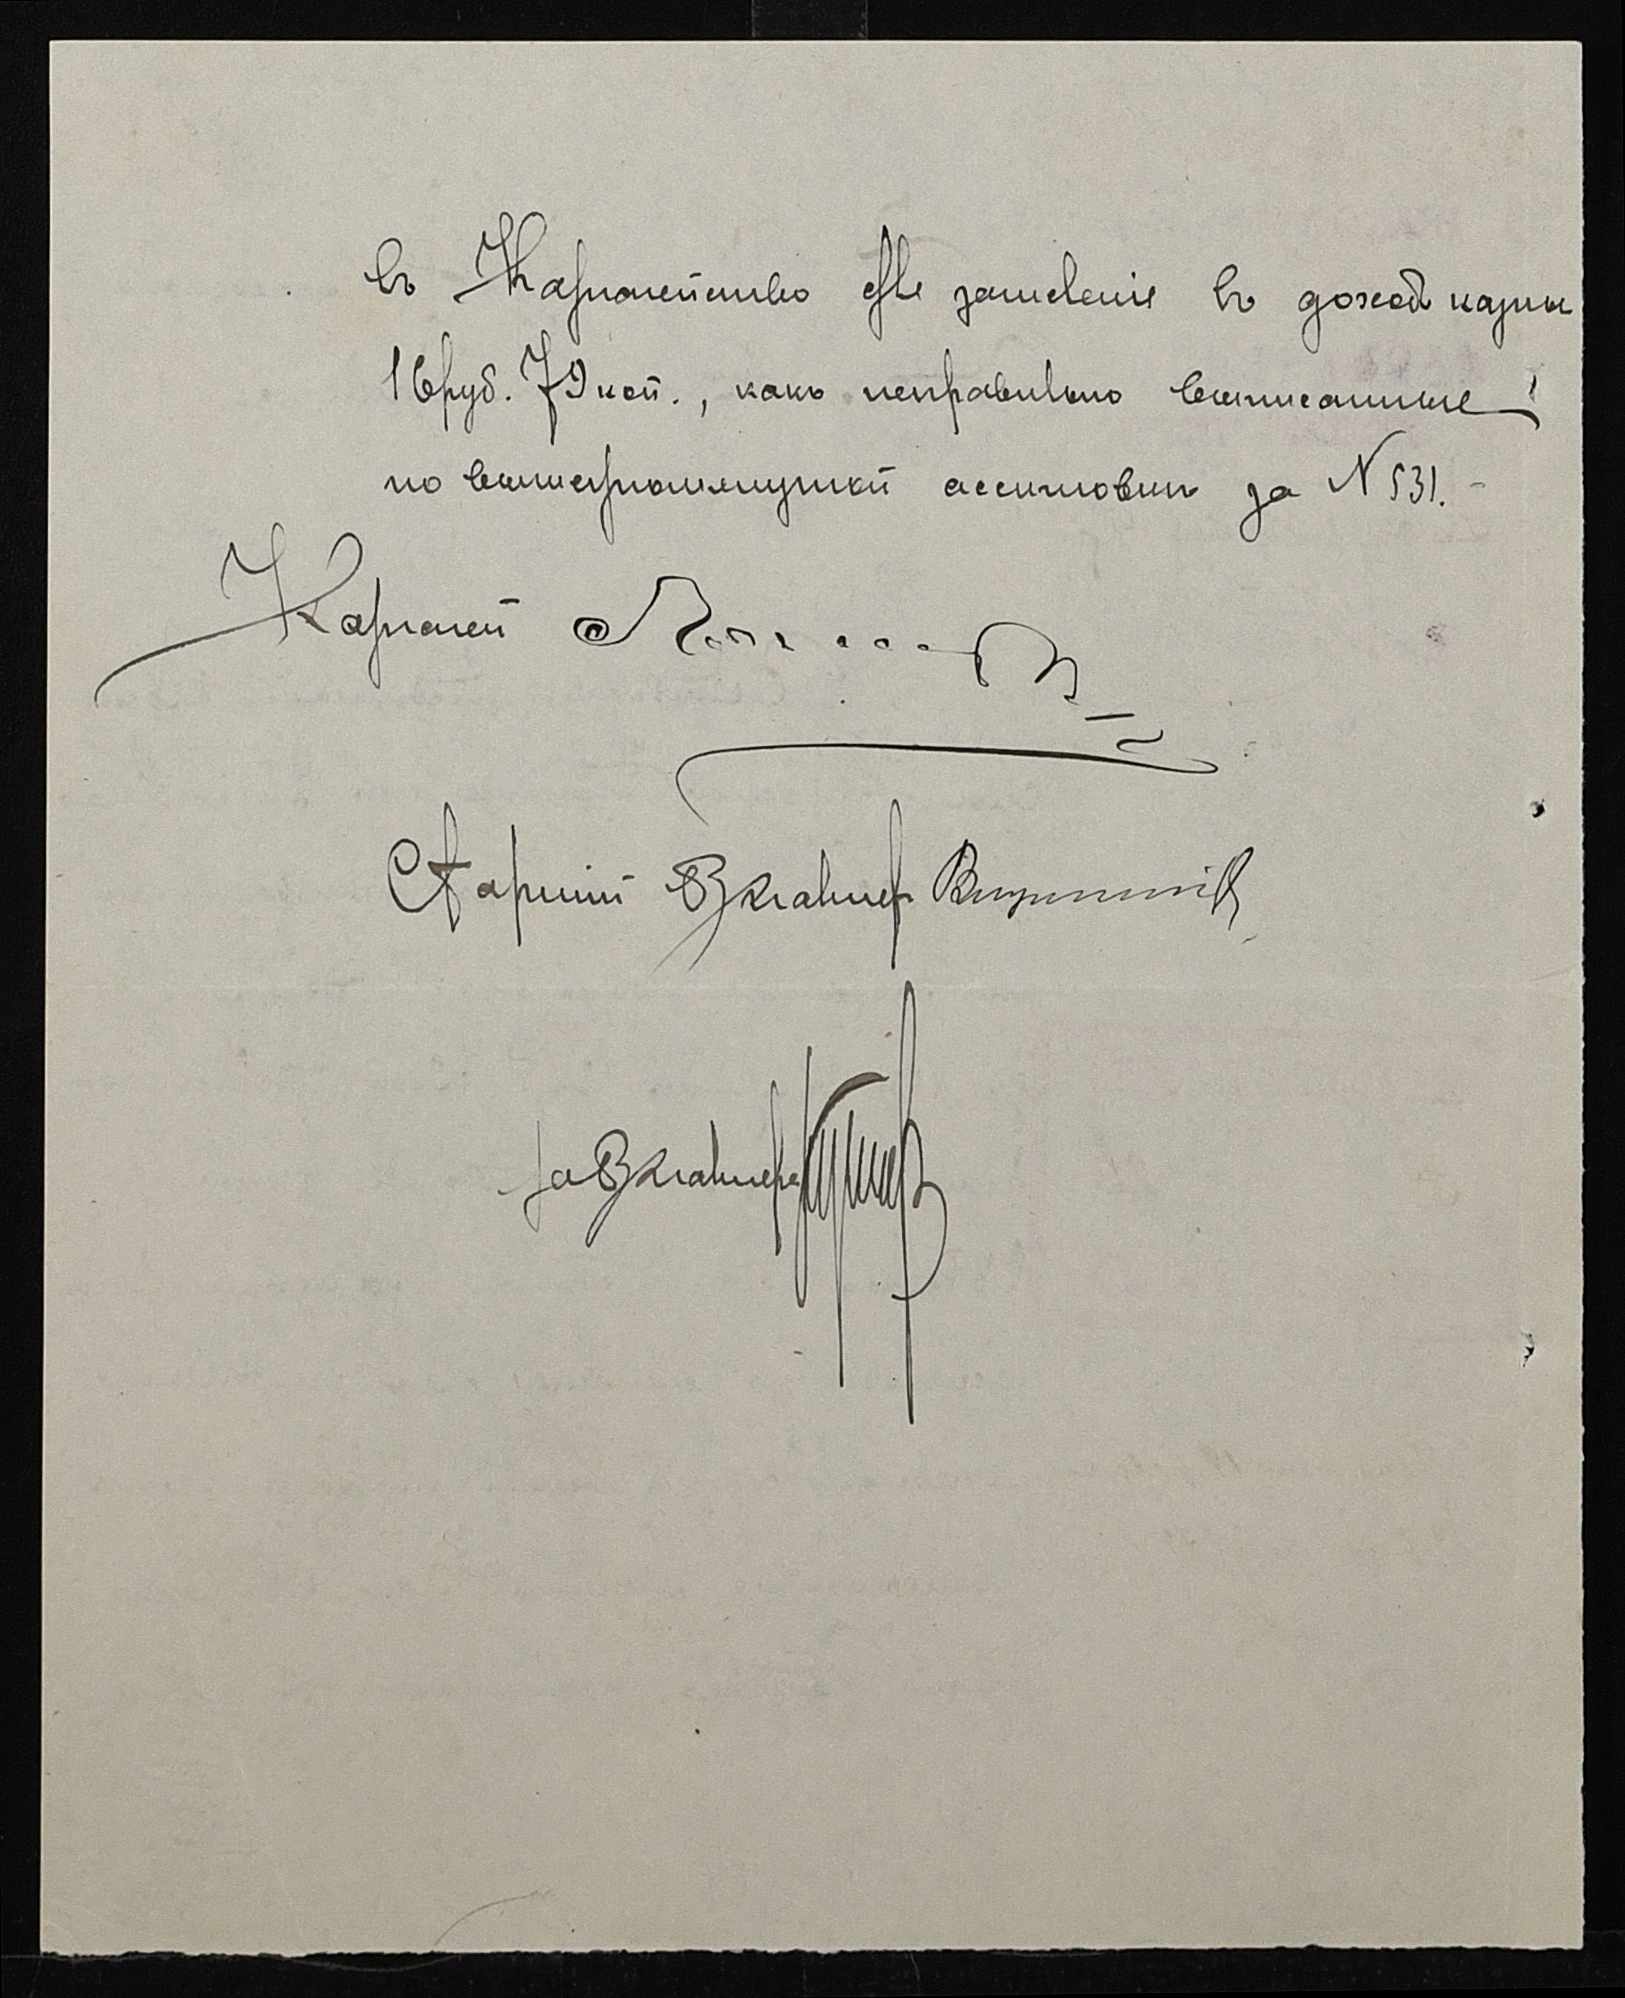 въ Казначейство для зачисленія въ доходъ казны
16 руб. 79 коп., какъ неправильно выписанные
по вышеупомянутой ассигновкѣ за N 531.
Казначей
Старшій Бухгалтеръ
за Бухгалтера